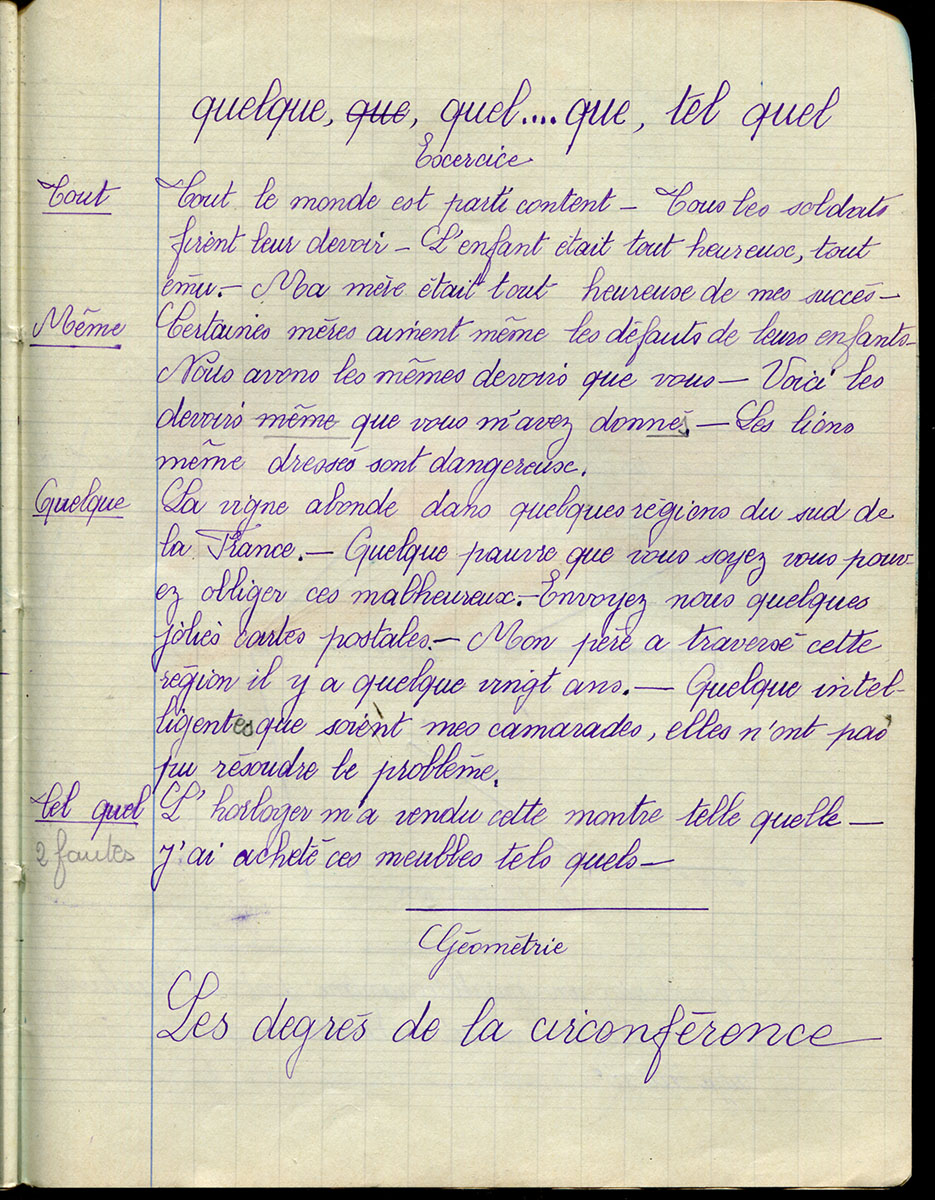 quelque, que, quel....que, tel quel
Excercice
Tout Tout le monde est parti content — Tous les soldats
firent leur devoir — L'enfant était tout heureux, tout
ému. — Ma mère était tout heureuse de mes succès —
Même Certaines mères aiment même les défauts de leurs enfants —
Nous avons les mêmes devoirs que vous — Voici les
devoirs même que vous m'avez donnés. — Les lions
même dressés sont dangereux.
Quelque La vigne abonde dans quelques régions du sud de
la France. — Quelque pauvre que vous soyez vous pouv-
ez obliger ces malheureux. — Envoyez nous quelques
jolies cartes postales. — Mon père a traversé cette
région il y a quelque vingt ans. — Quelque intel-
ligentes que soient mes camarades, elles n'ont pas
pu résoudre le problème.
Tel quel L'horloger m'a vendu cette montre telle quelle —
2 fautes j'ai acheté ces meubles tels quels —
Géométrie
Les degrés de la circonférence